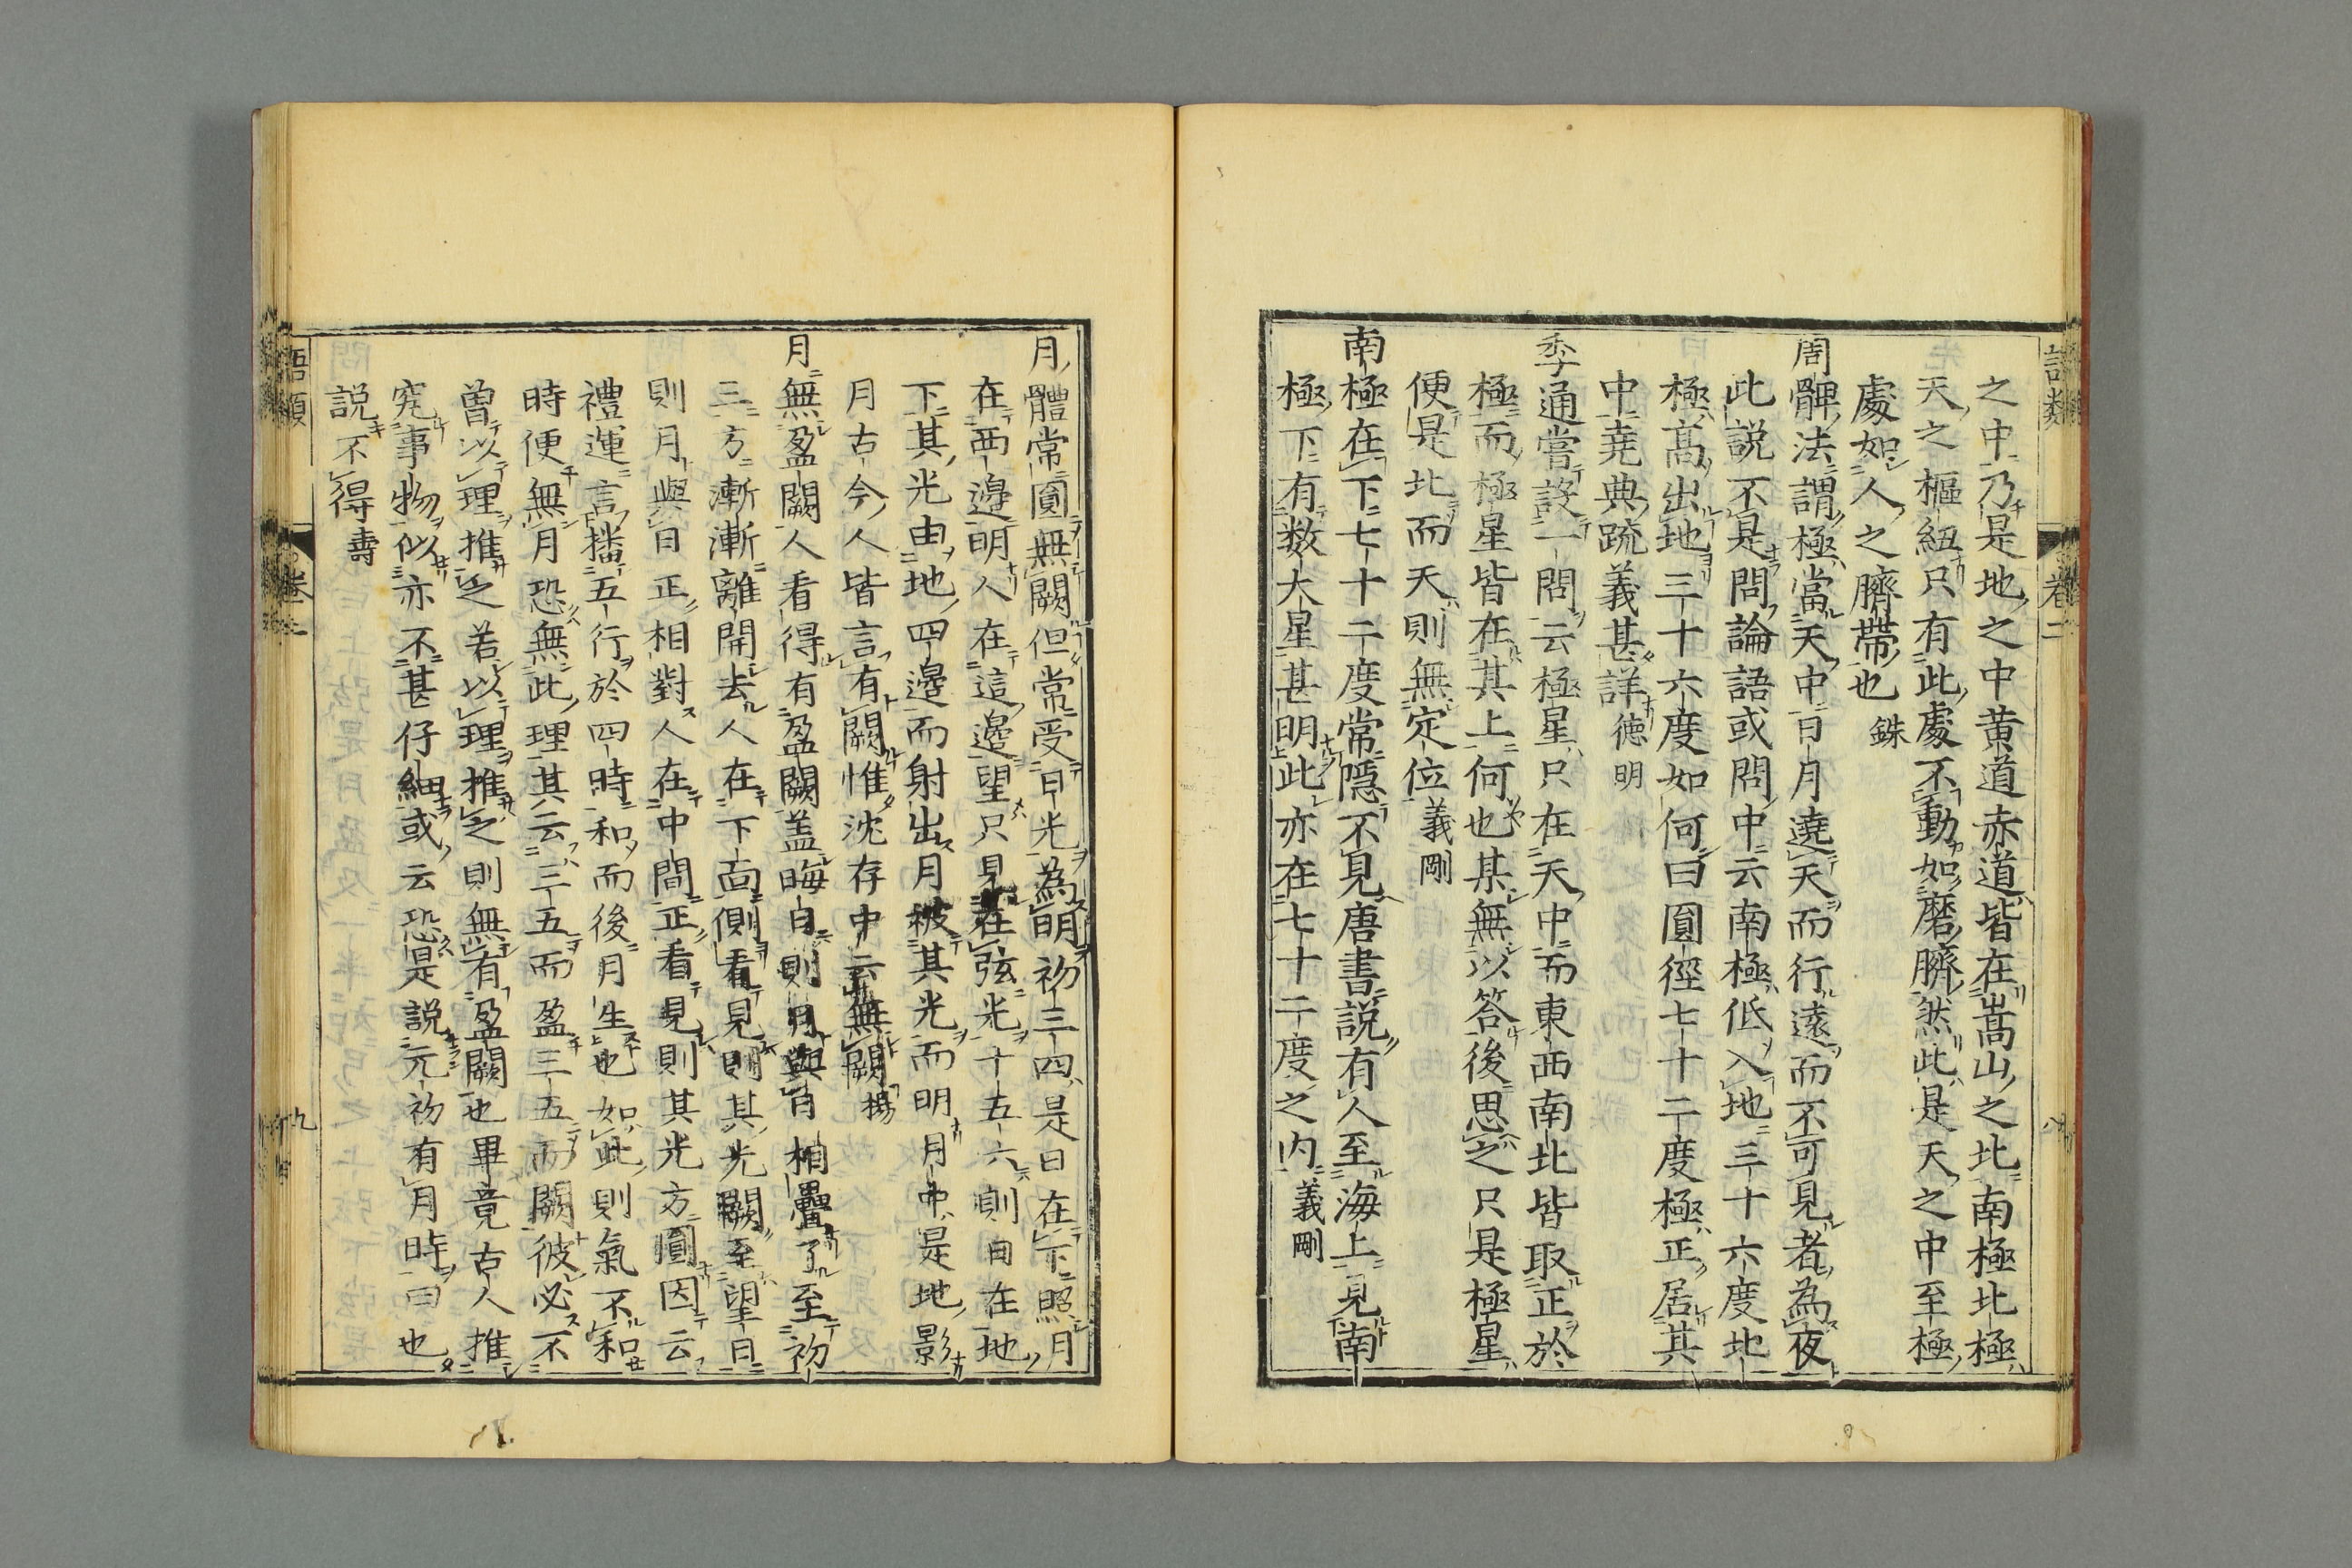 語類
卷二
八
之中乃是地之中黄道赤道皆在嵩山之北南極北極
天之樞紐只有此處不動如磨臍然此是天之中至極
處如人之臍帶也 銖
周髀法謂極當天中日月遶天而行遠而不可見者為夜
此説不是問論語或問中云南極低入地三十六度北
極高出地三十六度如何曰圓徑七十二度極正居其
中堯典疏義甚詳 德明
季通嘗設一問云極星只在天中而東西南北皆取正於
極而極星皆在其上何也某無以答後思之只是極星
便是北而天則無定位 義剛
南極在下七十二度常隠不見唐書説有人至海上見南
極下有数大星甚明此亦在七十二度之内 義剛
月體常圓無闕但常受日光為明初三四是日在下照月
在西邊明人在這邊望只見在弦光十五六則日在地
下其光由地四邊而射出月被其光而明月中是地影
月古今人皆言有闕惟沈存中云無闕 揚
月無盈闕人看得有盈闕盖晦日則月與日相疊了至初
三方漸漸離開去人在下面側看見則其光闕至望日
則月與日正相對人在中間正看見則其光方圓因云
禮運言播五行於四時和而後月生也如此則氣不和
時便無月恐無此理其云三五而盈三五而闕彼必不
曽以理推之若以理推之則無有盈闕也畢竟古人推
究事物似亦不甚仔細或云恐是説元初有月時曰也
説不得 壽
語類
卷二
九